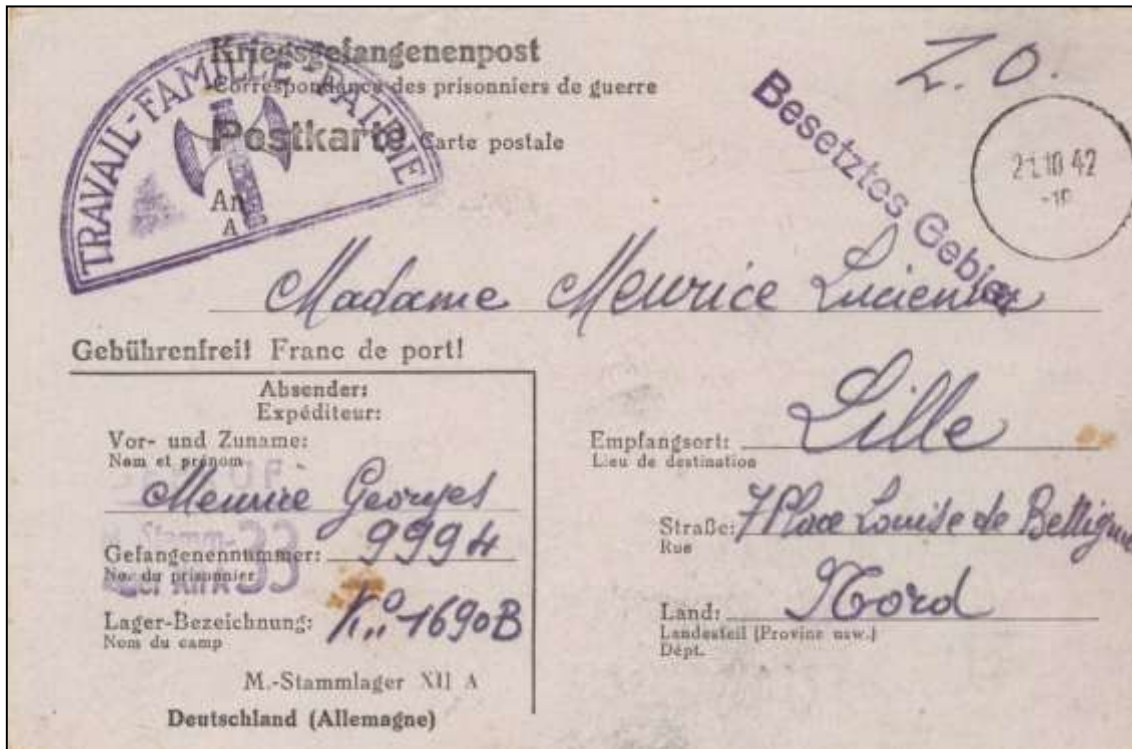 Kriegsgefangenenpost
Correspondance des prisonniers de guerre
Postkarte Carte postale
TRAVAIL-FAMILLE-PATRIE
Z. O.
Besetztes Gebiet
21.10 42
An
A
Madame Meurice Lucienne
Gebührenfrei! Franc de port!
Absender:
Expéditeur:
Vor- und Zuname:
Nom et prénom
Meurice Georges
Gefangenennummer: 9994
No. du prisonnier
33
Lager-Bezeichnung: 1690B
Nom du camp
M.-Stammlager XII A
Deutschland (Allemagne)
Empfangsort: Lille
Lieu de destination
Straße: 7 Place Louise de Bettignies
Rue
Land: Nord
Landesteil (Provinz usw.)
Dépt.